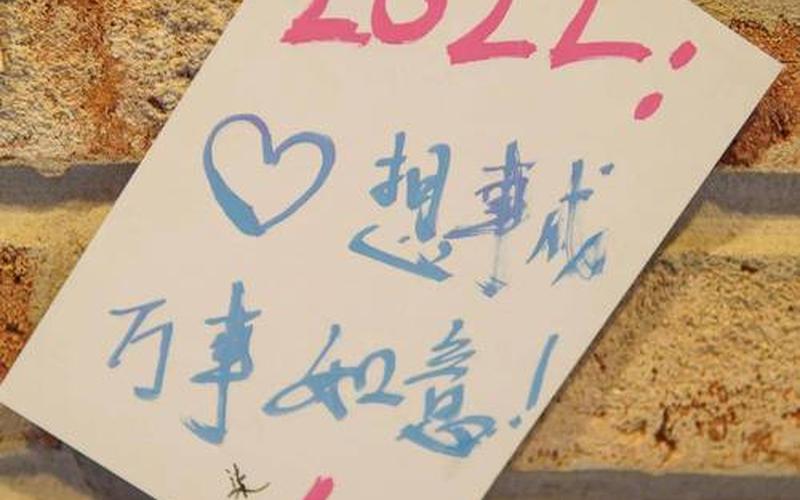 2022:
♡想事成
万事如意!